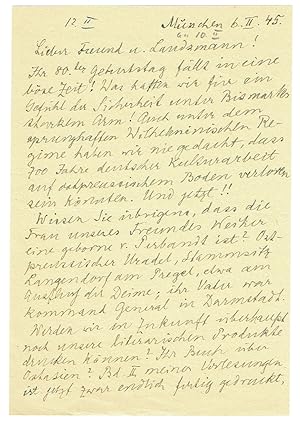 12 II
München 6. II. 45
an 10. II
Lieber Freund u. Landsmann!
Ihr 80.ter Geburtstag fällt in eine
böse Zeit! Was hatten wir für ein
Gefühl der Sicherheit unter Bismarcks
starkem Arm! Auch unter dem
sprunghaften Wilhelminischen Re-
gime haben wir nie gedacht, dass
700 Jahre deutscher Kulturarbeit
auf ostpreussischem Boden verloren
sein könnten. Und jetzt!!
Wissen Sie übrigens, dass die
Frau unseres Freundes
eine geborne v. Perbandt ist? Ost-
preussischer Uradel, Stammsitz
Langendorf am Pregel, etwa am
Ausfluss der Deime; ihr Vater war
kommand General in Darmstadt.
Werden wir in Zukunft überhaupt
noch unsere literarischen Produkte
drucken können? Ihr Buch über
Ostasien? Bd. II meiner Vorlesungen
ist jetzt zwar endlich fertig gedruckt,